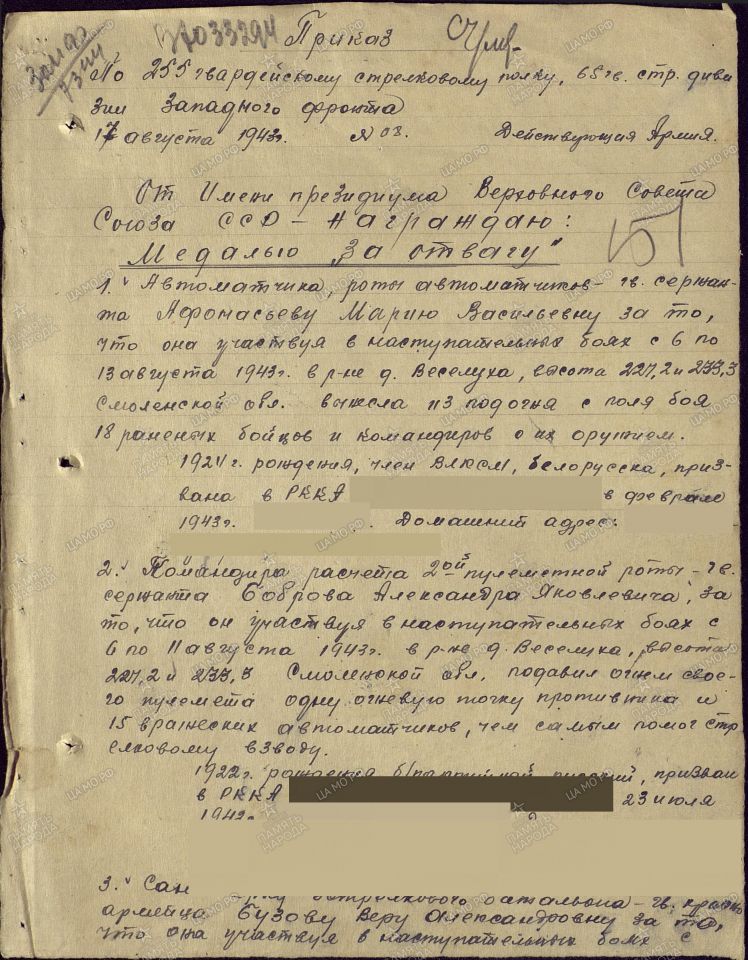 В7033294 Приказ
По 255 гвардейскому стрелковому полку, 65 гв. стр. диви
зии Западного фронта
17 августа 1943г. № 08. Действующая Армия.
От Имени президиума Верховного Совета
Союза ССР - награждаю:
Медалью „За отвагу"
1. Автоматчика, роты автоматчиков - гв. сержан-
та Афонасьеву Марию Васильевну за то,
что она участвуя в наступательных боях с 6 по
13 августа 1943г. в р-не д. Веселуха, высота 227,2 и 233,3
Смоленской обл. вынсла из под огня с поля боя
18 раненых бойцов и командиров с их оружием.
рождения, член ВЛКСМ, белорусска, приз-
вана в РККА в феврале
1943г. Домашний адрес:
2. Командира расчета 2ой пулеметной роты - гв.
сержанта Боброва Александра Яковлевича, за
то, что он участвуя в наступательных боях с
6 по 11 августа 1943г. в р-не д. Веселуха, высота
227,2 и 233,3 Смоленской обл. подавил огнем свое-
го пулемета одну огневую точку противника и
15 вражеских автоматчиков, чем самым помог стр
елковому взводу.
1922г. рождения, призван
в РККА 23 июля
194
3. Сан
стрелкового баталиона - гв. красно
армейца Бузову Веру Александровну за то,
что она участвуя в наступательных боях с
ПАМЯТЬ НАРОДА
ЦАМО.РФ